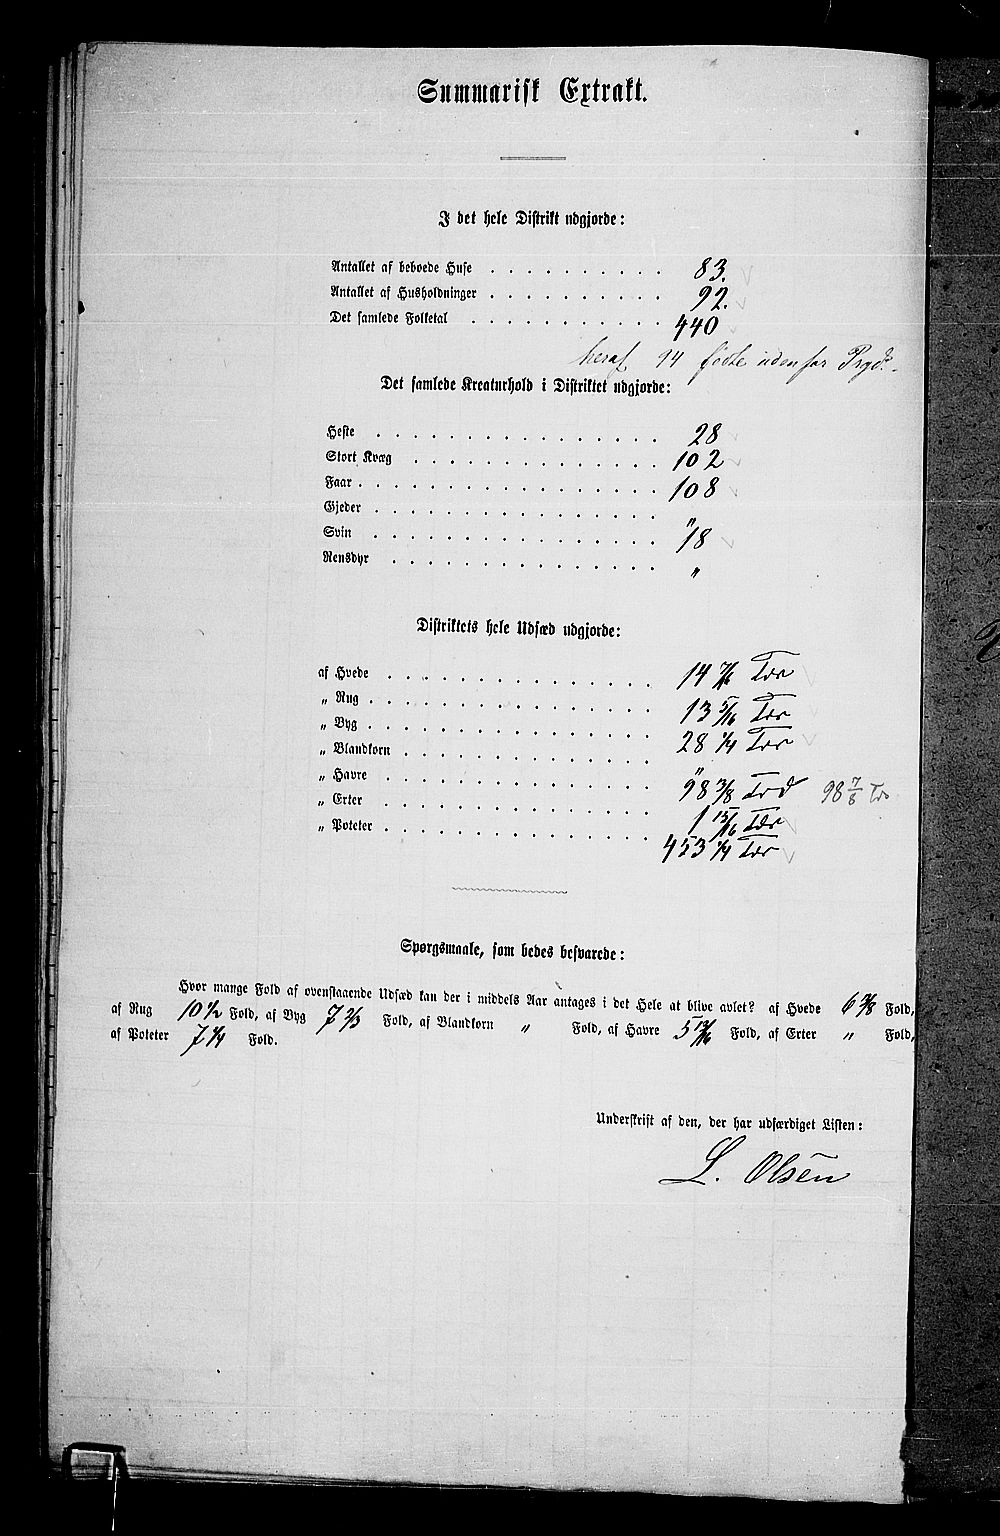 Summarisk Extrakt.
I det hele Distrikt udgjorde:
Antallet af beboede Huse . . . . . . . . . . 83.
Antallet af Husholdninger . . . . . . . . . . 92.
Det samlede Folketal . . . . . . . . . . . 440
heraf 94 fødte udenfor Prgd.
Det samlede Kreaturhold i Distriktet udgjorde:
Heste . . . . . . . . . . . . . . . . 28
Stort Kvæg . . . . . . . . . . . . . . 102
Faar . . . . . . . . . . . . . . . . . 108
Gjeder . . . . . . . . . . . . . . . . "
Svin . . . . . . . . . . . . . . . . 18
Rensdyr . . . . . . . . . . . . . . . "
Distriktets hele Udsæd udgjorde:
af Hvede . . . . . . . . . . . . . . . 14 7/16 Tdr
„ Rug . . . . . . . . . . . . . . . . 13 5/16 Tdr
„ Byg . . . . . . . . . . . . . . . . 28 1/4 Tdr
„ Blandkorn . . . . . . . . . . . . . "
„ Havre . . . . . . . . . . . . . . . 98 3/8 Trd 98 7/8 Tdr
„ Erter . . . . . . . . . . . . . . . 1 15/16 Tdr
„ Poteter . . . . . . . . . . . . . . 453 1/4 Tdr
Spørgsmaale, som bedes besvarede:
Hvor mange Fold af ovenstaaende Udsæd kan der i middels Aar antages i det Hele at blive avlet? af Hvede 6 3/8 Fold,
af Rug 10 1/2 Fold, af Byg 7 2/3 Fold, af Blandkorn " Fold, af Havre 5 13/16 Fold, af Erter " Fold,
af Poteter 7 1/4 Fold.
Underskrift af den, der har udfærdiget Listen:
L. Olsen